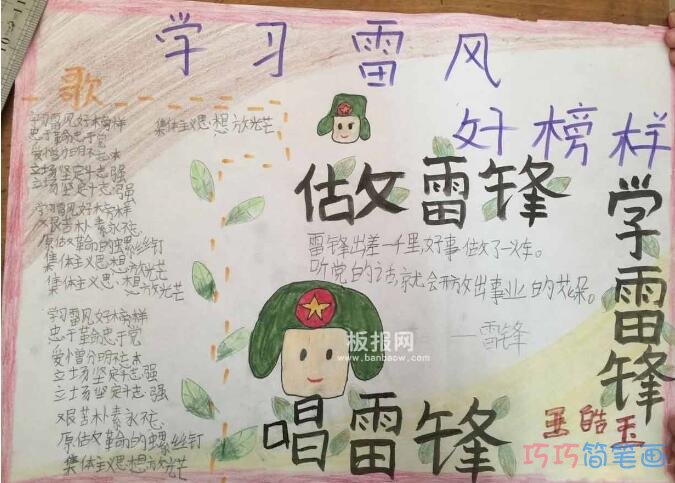 学习雷风
好榜样
歌
学习雷风好榜样
忠于革命忠于党
爱憎分明不忘本
立场坚定斗志强
立场坚定斗志强
学习雷风好榜样
艰苦朴素永不忘
原做革命的螺丝钉
集体主义思想放光芒
集体主义思想放光芒
学习雷风好榜样
忠于革命忠于党
爱憎分明不忘本
立场坚定斗志强
立场坚定斗志强
艰苦朴素永不忘
原做革命的螺丝钉
集体主义思想放光芒
集体主义思想放光芒
做雷锋
雷锋出差一千里,好事做了一火车。
听党的话,就会开放出事业的花朵。
——雷锋
学雷锋
唱雷锋
王皓玉
板报网
www.banbaow.com
巧巧简笔画